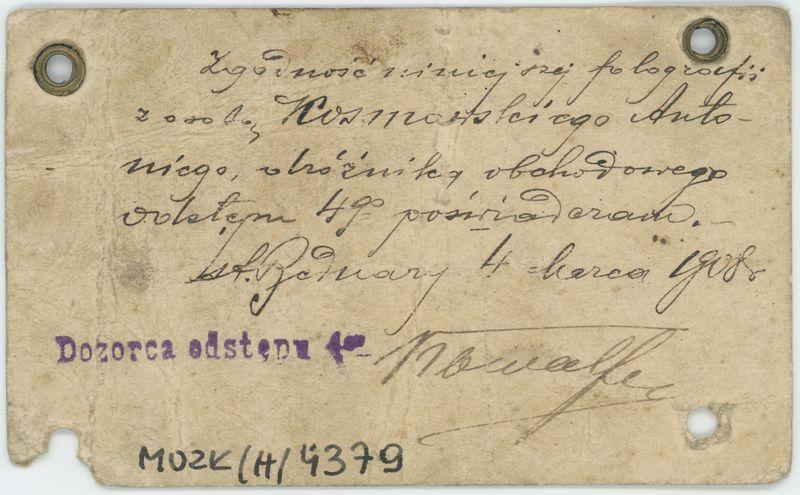 Zgodność niniejszej fotografii
z osobą Kosmowskiego Anto-
niego, stróżnika obchodowego
odstępu 49go poświadczam.-
st. Bednary 4 Marca 1908r
Dozorca odstępu 4go
MOZK/H/4379